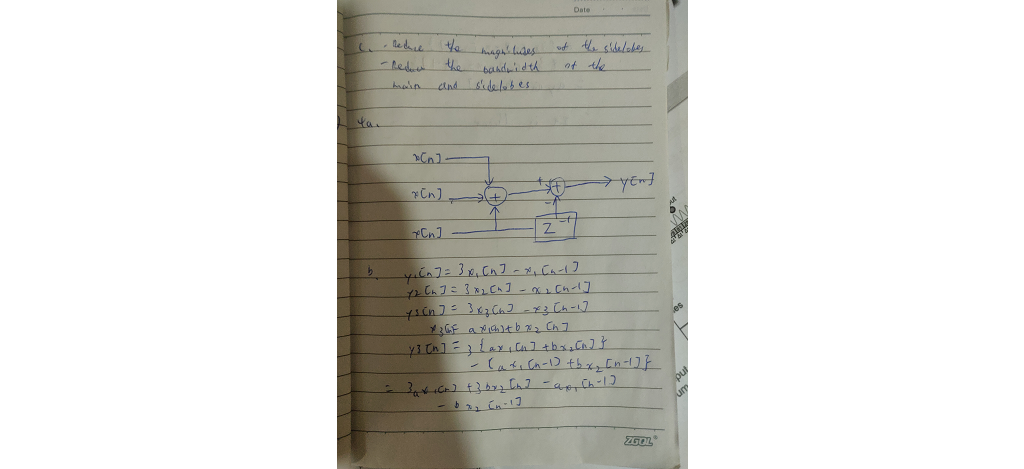 Date
c. - Reduce the magnitudes of the sidelobes
- Reduce the bandwidth of the
main and sidelobes
4a.
x[n]
x[n] + + + y[n]
-
x[n] Z⁻¹
b. y₁[n] = 3x₁[n] - x₁[n-1]
y2[n] = 3x2[n] - x2[n-1]
y3[n] = 3x3[n] - x3[n-1]
x3[n] = ax₁[n] + bx₂[n]
y3[n] = 3{ax₁[n] + bx₂[n]}
- {ax₁[n-1] + bx₂[n-1]}
= 3ax₁[n] + 3bx₂[n] - ax₁[n-1]
- bx₂[n-1]